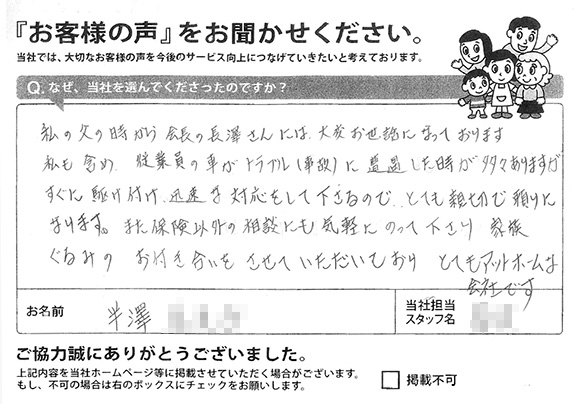 『お客様の声』をお聞かせください。
当社では、大切なお客様の声を今後のサービス向上につなげていきたいと考えております。
Q. なぜ、当社を選んでくださったのですか？
私の父の時から会長の長澤さんには、大変お世話になっております
私も含め、従業員の車がトラブル(事故)に遭遇した時が多々ありますが
すぐに駆け付け、迅速な対応をして下さるので、とても親切で頼りに
なります。また保険以外の相談にも気軽にのって下さり 家族
ぐるみの お付き合いを させていただいており とてもアットホームな
会社です
お名前
半澤
当社担当
スタッフ名
ご協力誠にありがとうございました。
上記内容を当社ホームページ等に掲載させていただく場合がございます。
もし、不可の場合は右のボックスにチェックをお願いします。
掲載不可